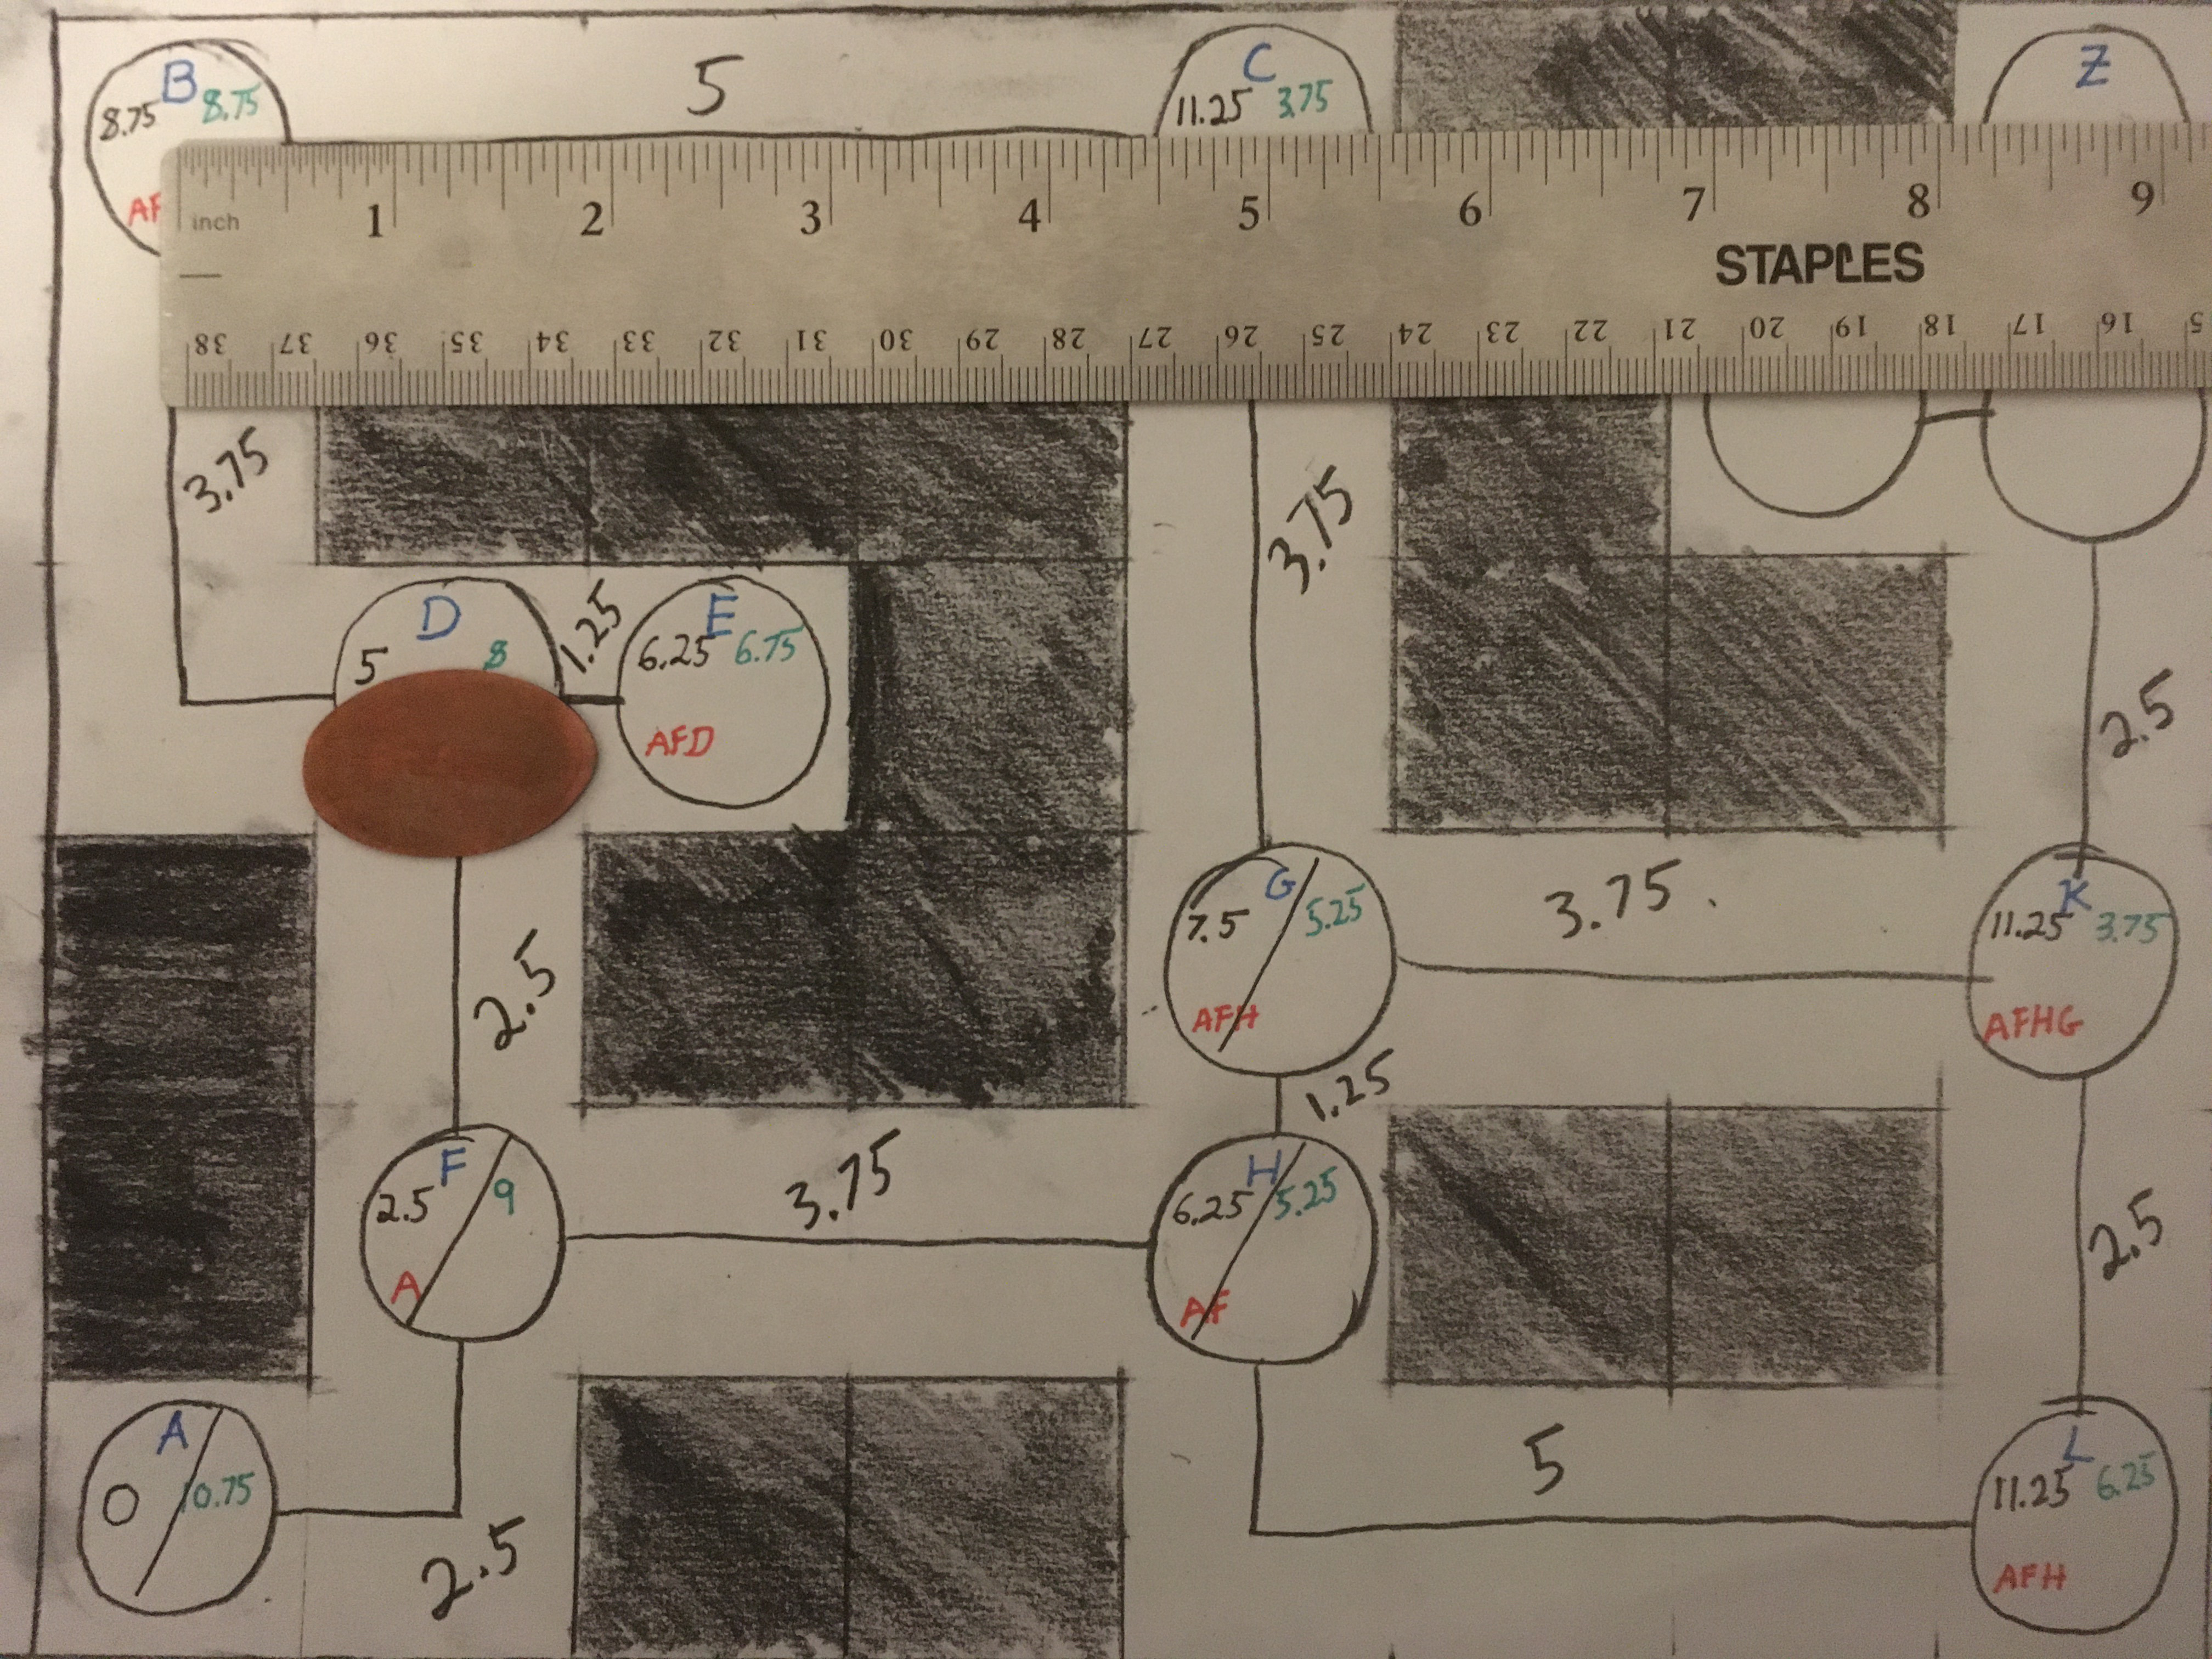 B
8.75 8.75
AF
5
C
11.25 3.75
Z
inch
1 2 3 4 5 6 7 8 9
STAPLES
38 37 36 35 34 33 32 31 30 29 28 27 26 25 24 23 22 21 20 19 18 17 16
3.75
3.75
D
5 8
1.25
E
6.25 6.75
AFD
2.5
G
7.5 5.25
AFH
3.75
K
11.25 3.75
AFHG
2.5
1.25
F
2.5 9
A
3.75
H
6.25 5.25
AF
2.5
A
0 10.75
2.5
5
L
11.25 6.25
AFH